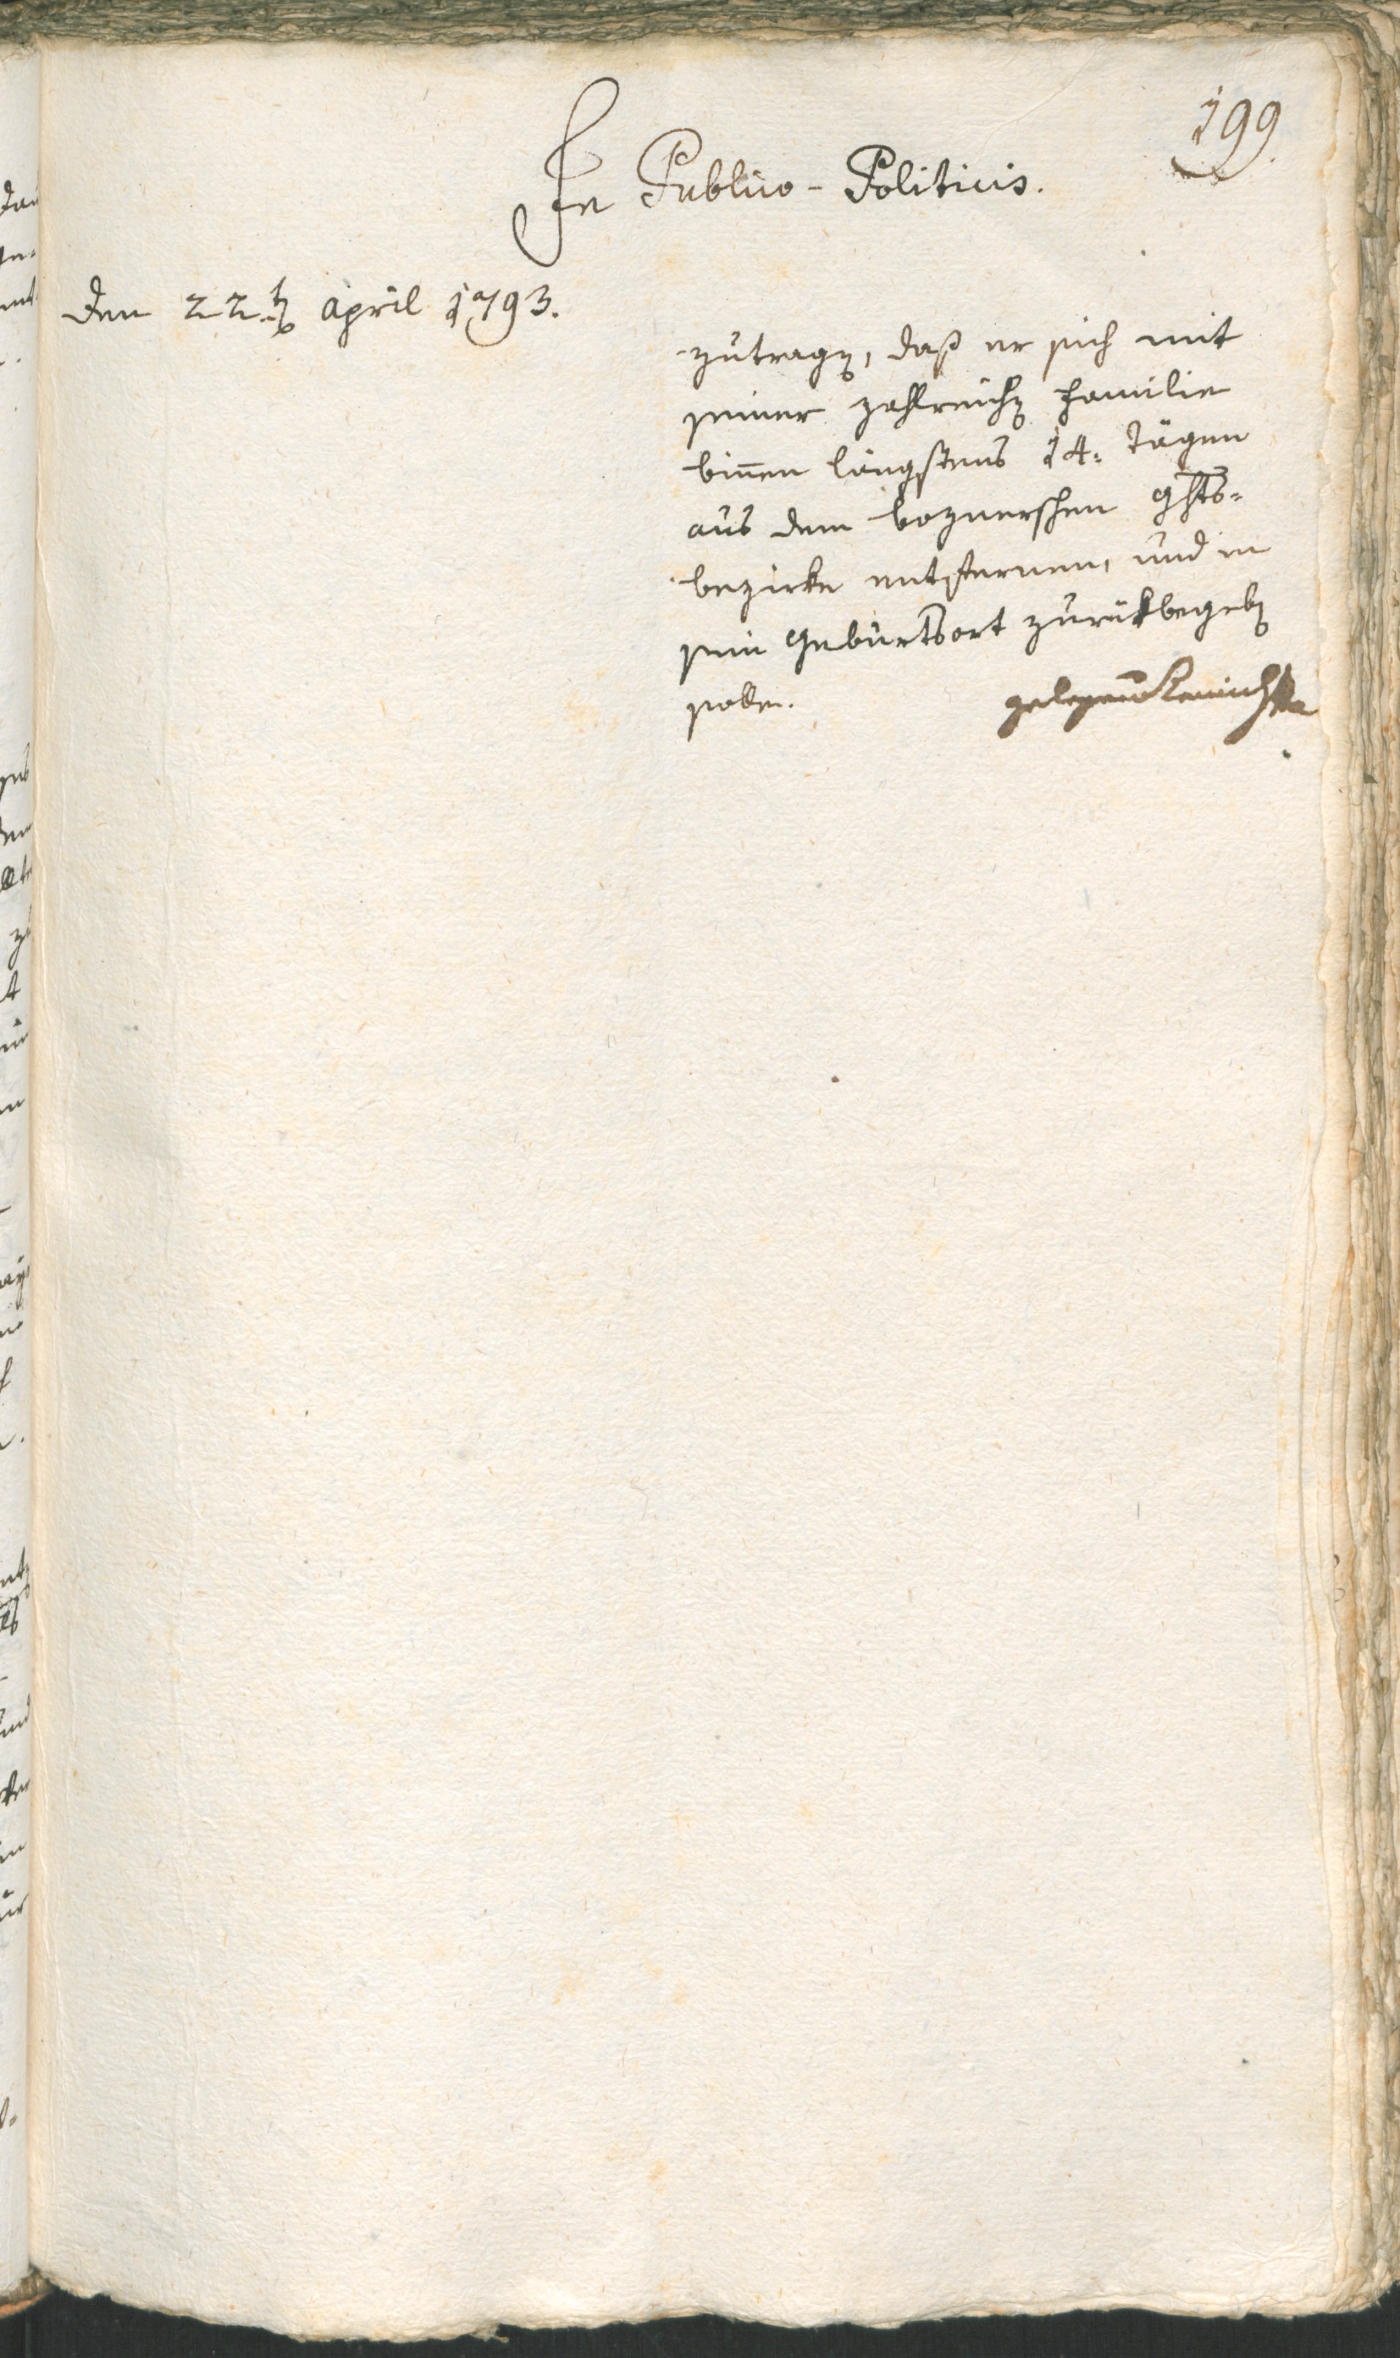 199.
In Publico-Politicis.
Den 22.t april 1793.
zutragen, daß er sich mit
seiner zahlreichen Familie
binen längstens 14: Tägen
aus dem boznerschen Ghts-
bezirke entfernen, und in
sein Geburtsort zurükbegeben
solle.